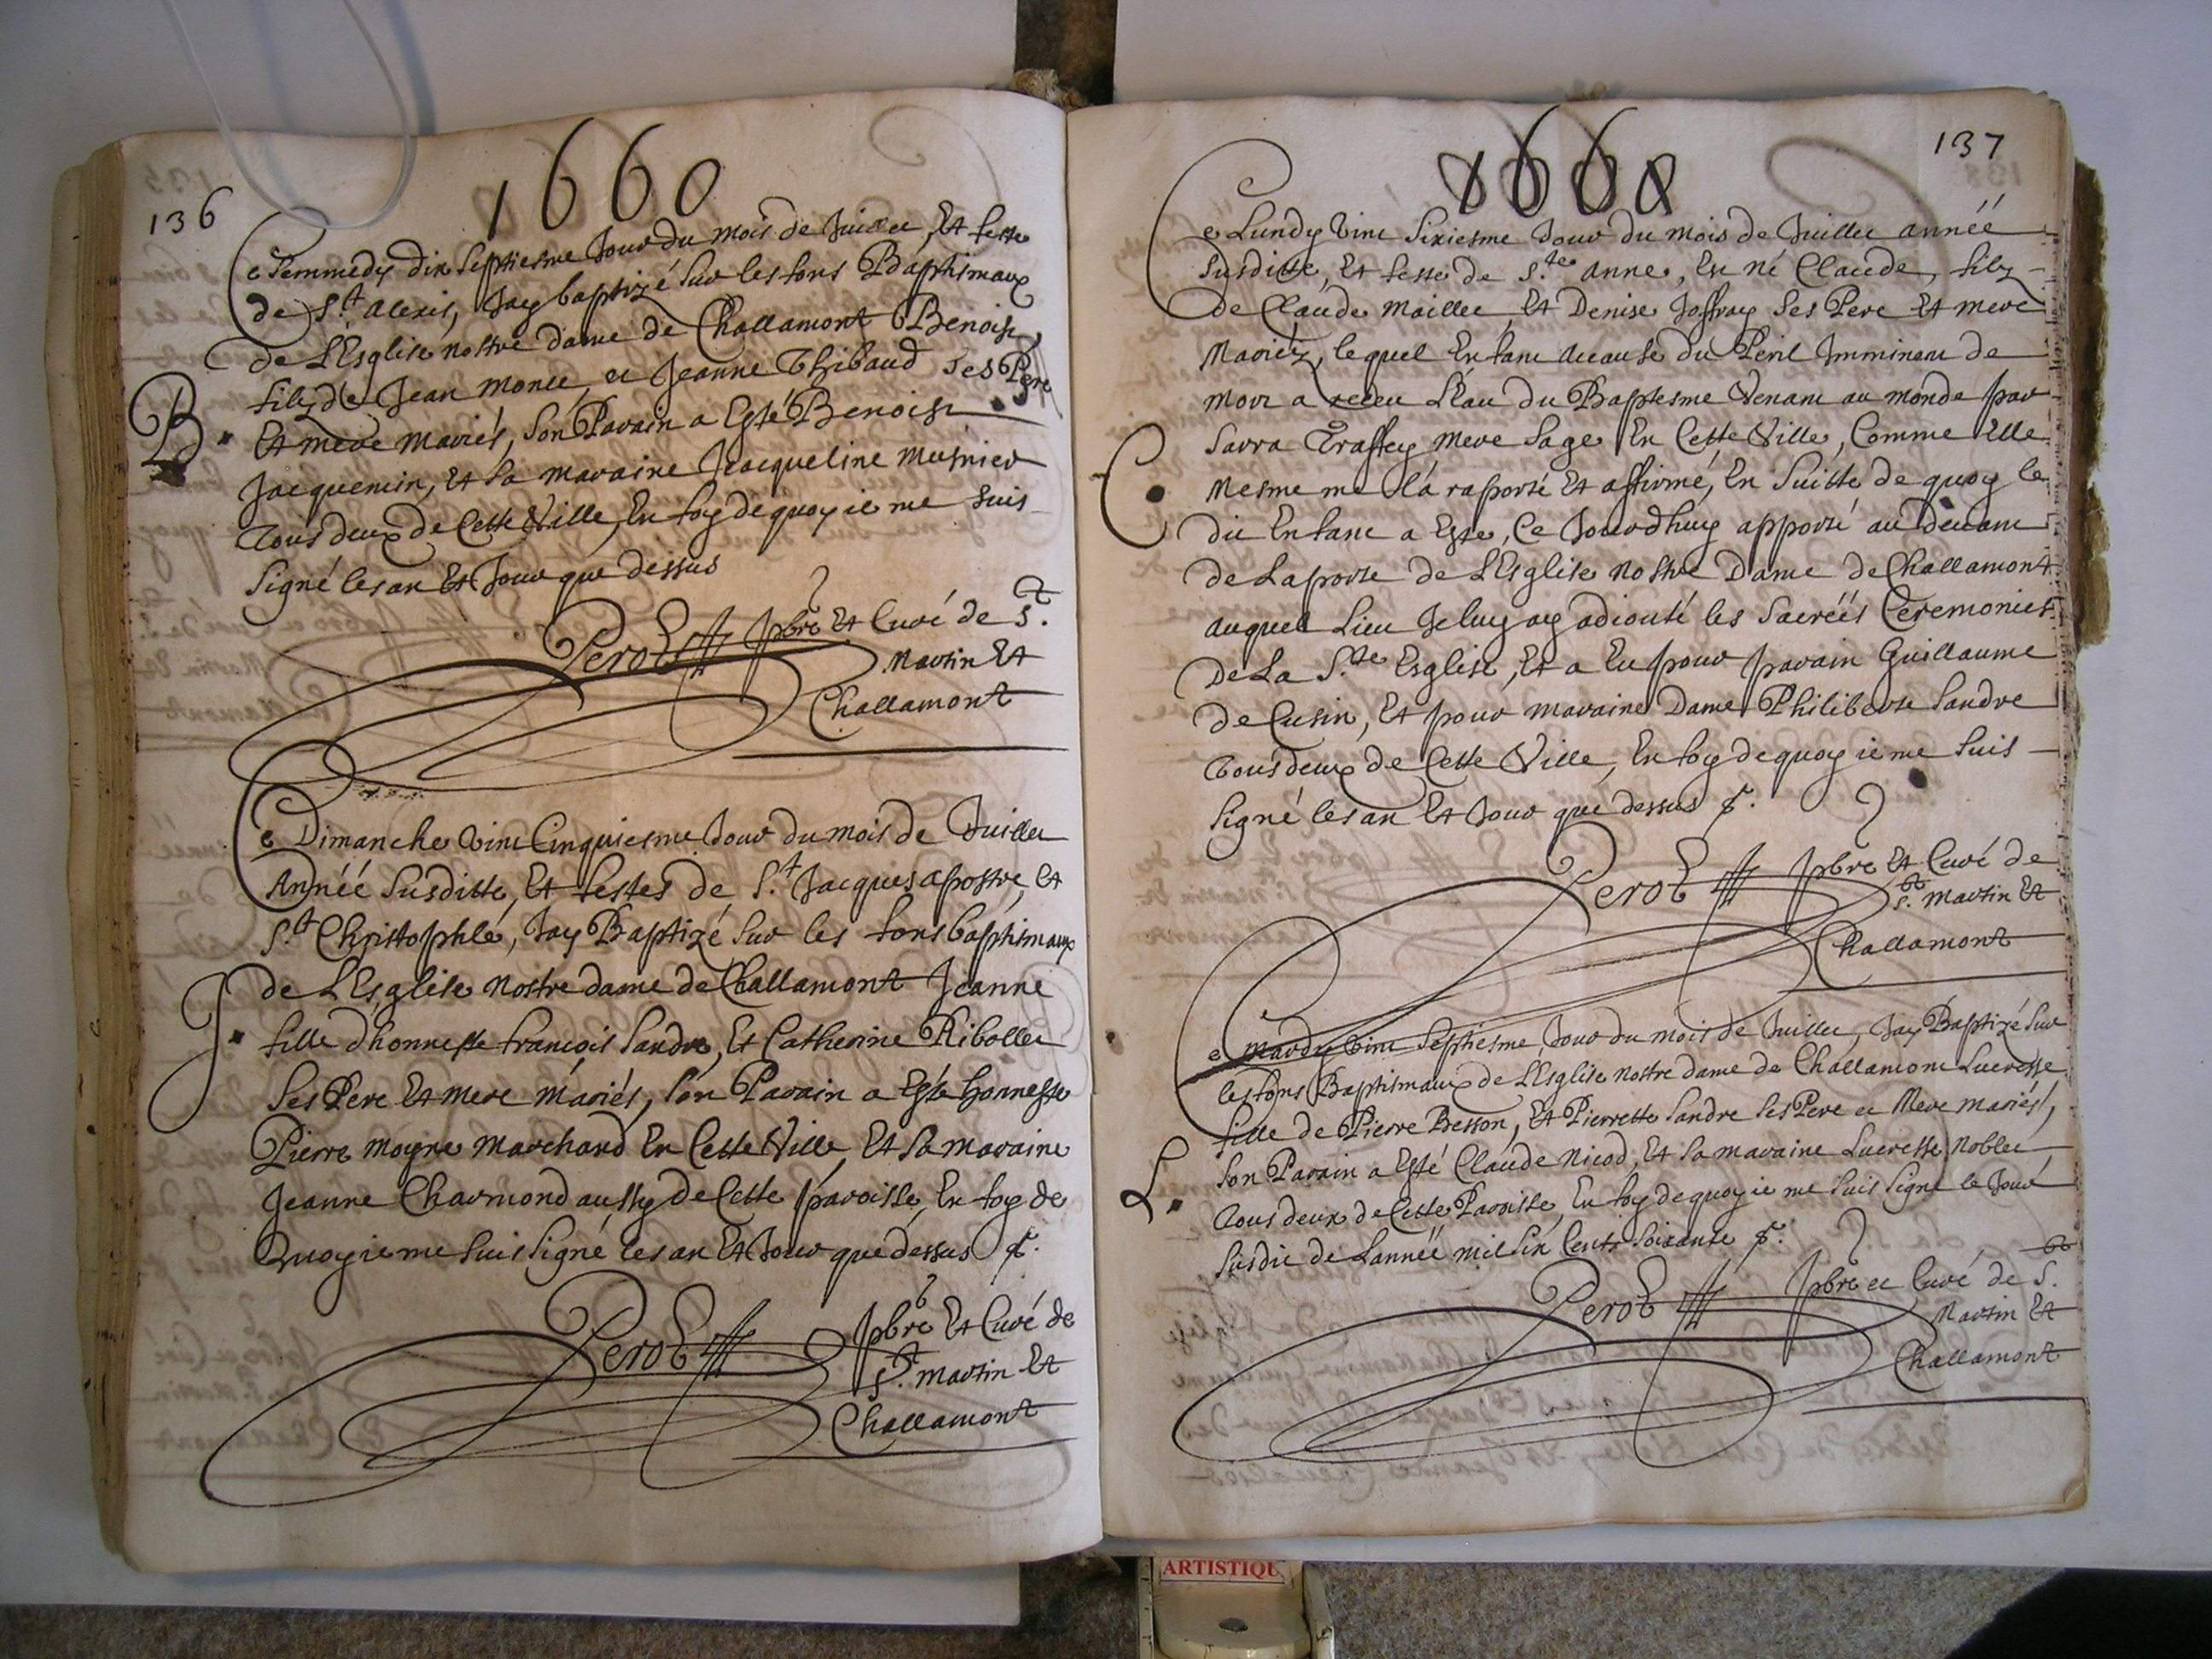 136
1660
Ce Semmedy dix septiesme Jour du mois de Juillet, Et feste
de S.t Alexis, Jay baptizé sur les fons Baptismaux
de L'Esglise nostre dame de Challamont Benoist
filz de Jean monet, et Jeanne Thibaud ses Pere
B.
Et mere mariés, son Parain a Esté Benoist
Jacquemin, Et sa maraine Jeacqueline musnier
Tous deux de Cette Ville, En foy de quoy ie me suis
signé les an Et Jour que dessus
Perot pbre Et Curé de S.t
Martin Et
Challamont
Ce Dimanche vint Cinquiesme Jour du mois de Juillet
Année susditte, Et festes de S.t Jacques apostre, Et
S.t Christophle, Jay Baptizé sur les fons baptismaux
de L'Esglise nostre dame de Challamont Jeanne
J.
fille d'honneste francois sandre, Et Catherine Ribollet
ses Pere Et mere mariés, son Parain a Esté honneste
Pierre moyne marchand En Cette Ville, Et sa maraine
Jeanne Charmond aussy de Cette paroisse, En foy de
Quoy ie me suis signé les an Et Jour que dessus
Perot pbre Et Curé de
S.t martin Et
Challamont
137
1660
Ce Lundy vint sixiesme Jour du mois de Juillet année
susditte, Et feste de S.te anne, Est né Claude, filz
de Claude maillet, Et Denise Joffray ses Pere Et mere
Mariéz, lequel Enfant acause du Peril Imminent de
mort a receu L'eau du Baptesme venant au monde par
sarra Traffey mere sage En Cette Ville, Comme Elle
C.
Mesme me l'a raporté Et affirmé, En suitte de quoy le
dit Enfant a Este, Ce Jourdhuy apporté au deuant
de La porte de L'Esglise nostre Dame de Challamont
auquel Lieu Je luy ay adiouté les sacréés Ceremonies
De La S.te Esglise, Et a Eu pour parain Guillaume
de Cusin, Et pour maraine Dame Philiberte sandre
Tous deux de Cette Ville, En foy de quoy ie me suis
signé les an Et Jour que dessus
Perot pbre Et Curé de
S.t martin Et
Challamont
Ce mardy vint septiesme Jour du mois de Juillet, Jay Baptizé sur
les fons Baptismaux de L'Esglise nostre dame de Challamont Lucresse
fille de Pierre Besson, Et Pierrette sandre ses Pere et Mere mariés,
L.
son Parain a Esté Claude nicod, Et sa maraine Lucresse noblet
Tous deux de Cette Paroisse, En foy de quoy ie me suis signé le Jour
susdit de Lannéé mil six Cents soixante
Perot pbre et Curé de S.t
Martin Et
Challamont
ARTISTIQU